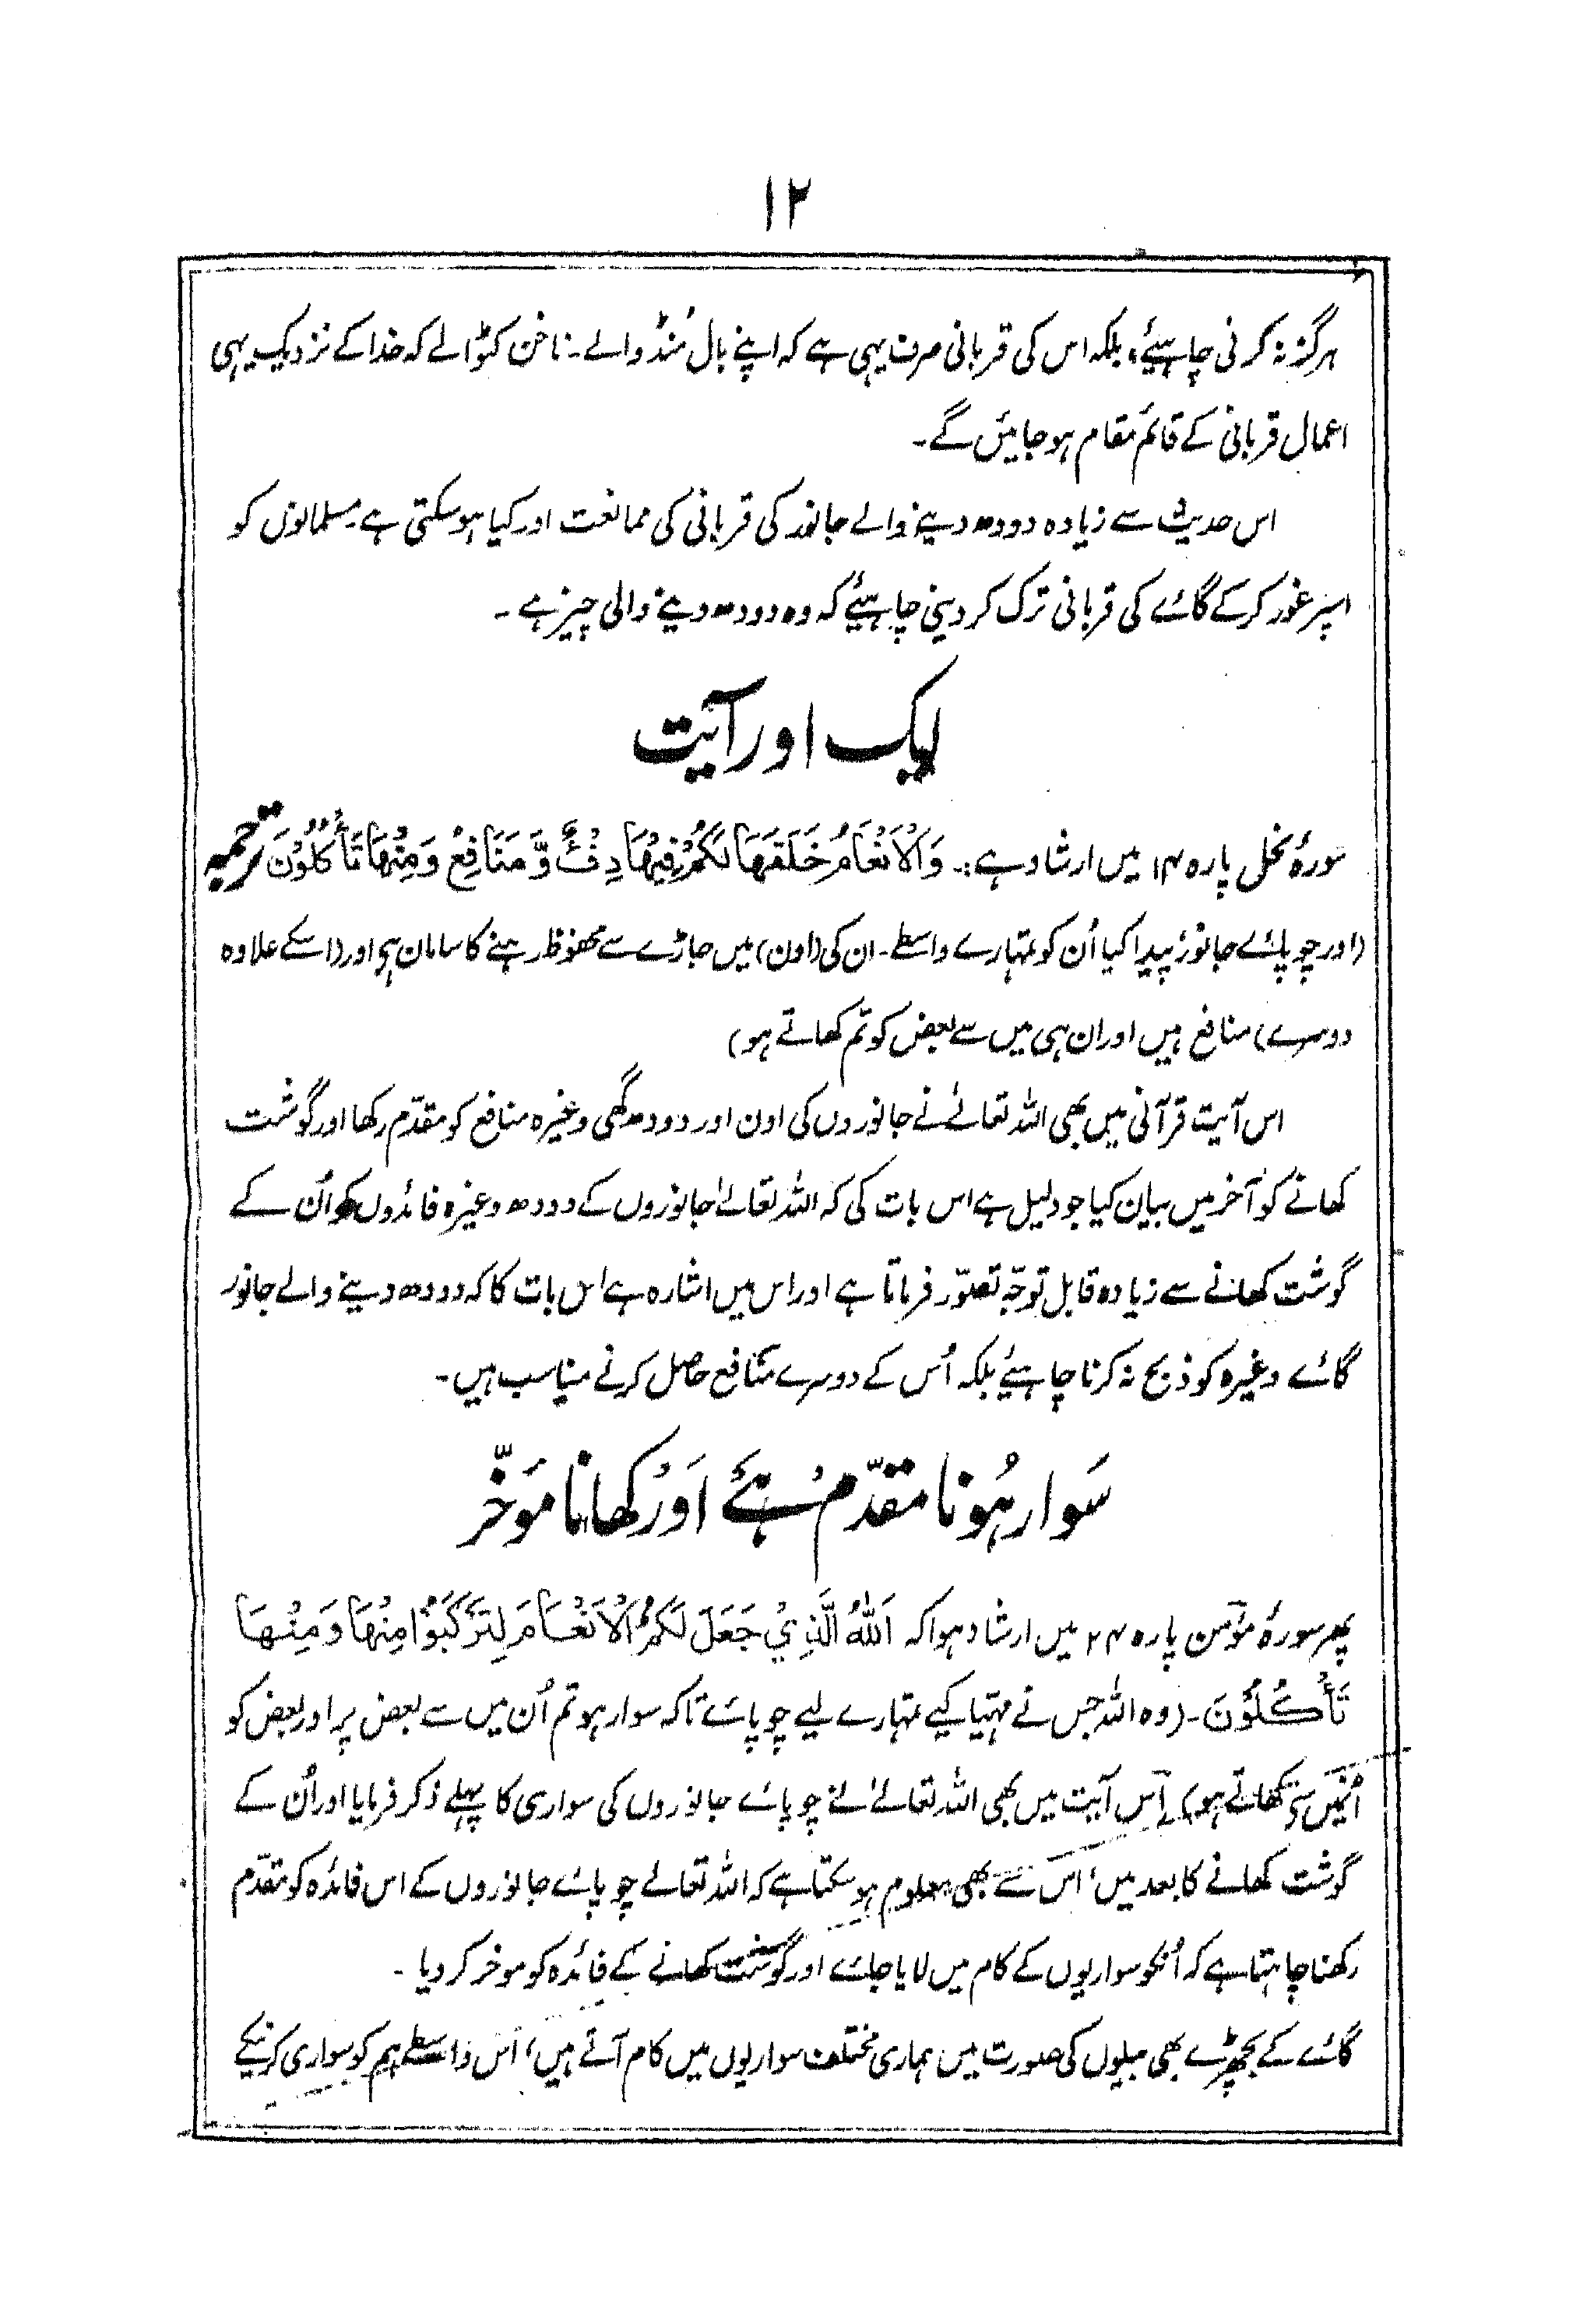 ۱۲
ہرگز نہ کرنی چاہئیے، بلکہ اس کی قربانی صرف یہی ہے کہ اپنے بال مُنڈوالے۔ ناخن کٹوالے کہ خدا کے نزدیک یہی
اعمال قربانی کے قائم مقام ہو جائیں گے۔
اس حدیث سے زیادہ دودھ دینے والے جانور کی قربانی کی ممانعت اور کیا ہو سکتی ہے۔ مسلمانوں کو
اسپر غور کر کے گائے کی قربانی ترک کر دینی چاہئیے کہ وہ دودھ دینے والی چیز ہے ۔
ایک اور آیت
سورۂ نحل پارہ ۱۴ میں ارشاد ہے:۔ وَالْاَنْعَامَ خَلَقَهَا لَكُمْ فِيْهَا دِفْءٌ وَّ مَنَافِعُ وَمِنْهَا تَأْكُلُوْنَ ترجمہ
(اور چوپائے جانور پیدا کیا اُن کو تمہارے واسطے۔ ان کی (اون) میں جاڑے سے محفوظ رہنے کا سامان ہی اور (اسکے علاوہ
دوسرے) منافع ہیں اور ان ہی میں سے بعض کو تم کھاتے ہو)
اس آیت قرآنی میں بھی اللہ تعالےٰ نے جانوروں کی اون اور دودھ گھی وغیرہ منافع کو مقدّم رکھا اور گوشت
کھانے کو آخر میں بیان کیا جو دلیل ہے اس بات کی کہ اللہ تعالےٰ جانوروں کے دودھ وغیرہ فائدوں کو اُن کے
گوشت کھانے سے زیادہ قابل توجّہ تصوّر فرماتا ہے اور اس میں اشارہ ہے اس بات کا کہ دودھ دینے والے جانور
گائے وغیرہ کو ذبح نہ کرنا چاہئیے بلکہ اُس کے دوسرے منافع حاصل کرنے مناسب ہیں۔
سَوار ہُونا مقدّم ہَے اَورْ کھانا مَوخّر
پھر سورۂ مؤمن پارہ ۲۴ میں ارشاد ہوا کہ اَللّٰهُ الَّذِيْ جَعَلَ لَكُمُ الْاَنْعَامَ لِتَرْكَبُوْا مِنْهَا وَمِنْهَا
تَأْكُلُوْنَ۔ (وہ اللہ جس نے مہیّا کیے تمہارے لیے چوپائے تاکہ سوار ہو تم اُن میں سے بعض پر اور بعض کو
اُنہیں سے کھاتے ہو) اس آیت میں بھی اللہ تعالےٰ نے چوپائے جانوروں کی سواری کا پہلے ذکر فرمایا اور اُن کے
گوشت کھانے کا بعد میں، اس سے بھی معلوم ہو سکتا ہے کہ اللہ تعالےٰ چوپائے جانوروں کے اس فائدہ کو مقدّم
رکھنا چاہتا ہے کہ اُنکو سواریوں کے کام میں لایا جائے اور گوشت کھانے کے فائدہ کو موخر کر دیا ۔
گائے کے بچھڑے بھی بیلوں کی صورت میں ہماری مختلف سواریوں میں کام آتے ہیں، اس واسطے ہم کو سواری کرنیکے